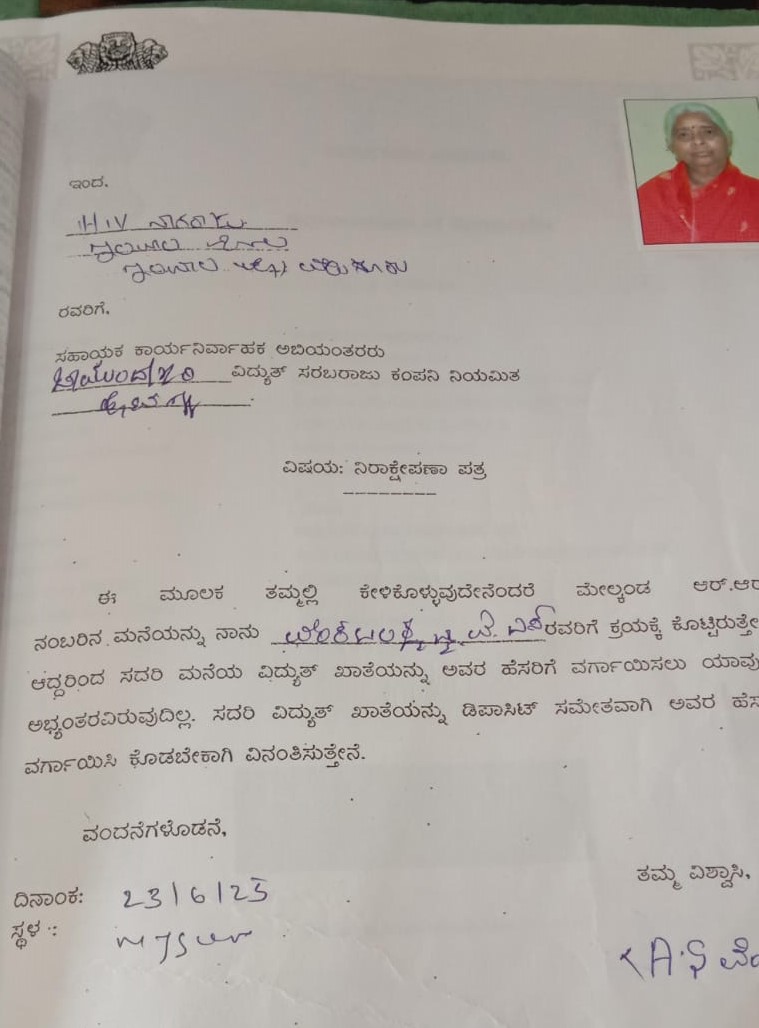 ಇಂದ.
H.V ನಾಗರಾಜು
ರವರಿಗೆ,
ಸಹಾಯಕ ಕಾರ್ಯನಿರ್ವಾಹಕ ಅಬಿಯಂತರರು
ವಿದ್ಯುತ್ ಸರಬರಾಜು ಕಂಪನಿ ನಿಯಮಿತ
ವಿಷಯ: ನಿರಾಕ್ಷೇಪಣಾ ಪತ್ರ
ಈ ಮೂಲಕ ತಮ್ಮಲ್ಲಿ ಕೇಳಿಕೊಳ್ಳುವುದೇನೆಂದರೆ ಮೇಲ್ಕಂಡ ಆರ್.ಆರ
ನಂಬರಿನ ಮನೆಯನ್ನು ನಾನು ರವರಿಗೆ ಕ್ರಯಕ್ಕೆ ಕೊಟ್ಟಿರುತ್ತೇ
ಆದ್ದರಿಂದ ಸದರಿ ಮನೆಯ ವಿದ್ಯುತ್ ಖಾತೆಯನ್ನು ಅವರ ಹೆಸರಿಗೆ ವರ್ಗಾಯಿಸಲು ಯಾವು
ಅಭ್ಯಂತರವಿರುವುದಿಲ್ಲ. ಸದರಿ ವಿದ್ಯುತ್ ಖಾತೆಯನ್ನು ಡಿಪಾಸಿಟ್ ಸಮೇತವಾಗಿ ಅವರ ಹೆಸ
ವರ್ಗಾಯಿಸಿ ಕೊಡಬೇಕಾಗಿ ವಿನಂತಿಸುತ್ತೇನೆ.
ವಂದನೆಗಳೊಡನೆ,
ತಮ್ಮ ವಿಶ್ವಾಸಿ,
ದಿನಾಂಕ: 23/6/25
ಸ್ಥಳ : mysur